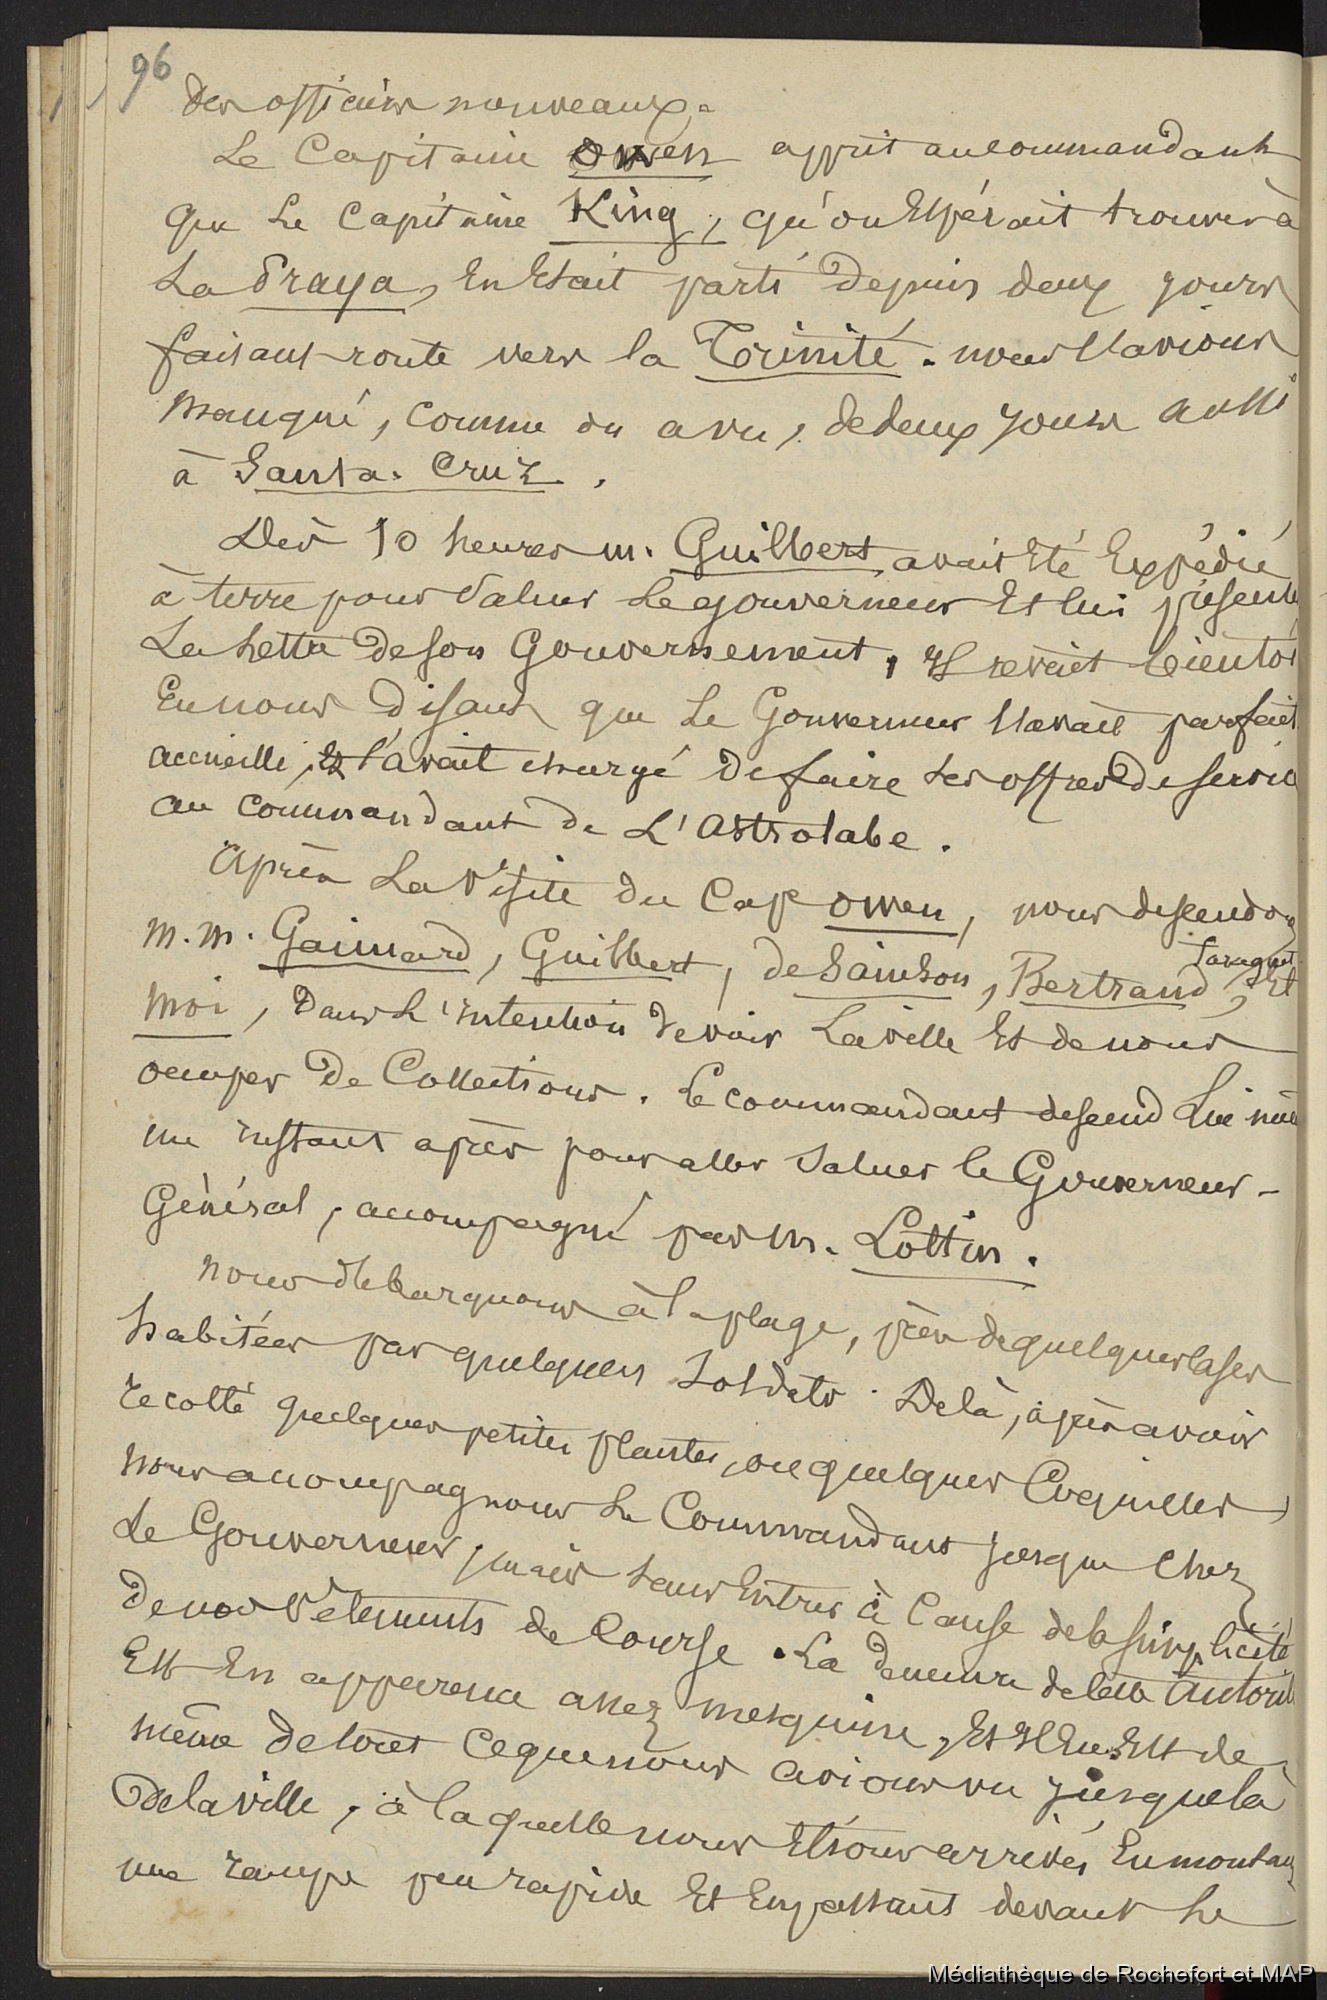 96
des officiers nouveaux.
Le Capitaine Owen apprit au commandant
que le Capitaine King, qu'on Espérait trouver à
La Praya, En Etait parti Depuis deux jours
faisant route vers la Trinité. nous l'avions
manqué, comme on a vu, de deux jours aussi
à Santa-Cruz.
Dès 10 heures m. Guilbert avait Eté Expédié
à terre pour saluer Le gouverneur Et lui présenter
La Lettre de son Gouvernement, Il revint bientôt
En nous disant que Le Gouverneur l'avait parfait
accueilli, Et l'avait chargé de faire ses offres de service
au commandant de L'Astrolabe.
Après La Visite du Cap Owen, nous descendons
m.m. Gaimard, Guilbert, de Sainson, Bertrand, Faraguet Et
moi, Dans L'intention de voir La ville Et de nous
occuper De Collections. Le commandant descend Lui même
un instant après pour aller saluer le Gouverneur-
Général, accompagné par m. Lottin.
nous débarquons à la plage, près de quelques cases
habitées par quelques Soldats. De là, après avoir
récolté quelques petites plantes, ou quelques Coquilles,
nous accompagnons Le Commandant jusque chez
Le Gouverneur, mais sans Entrer à Cause de la simplicité
De nos Vêtements de Course. La demeure de cette autorité
Est En apparence assez mesquine, Et Il En Est de
même De tout ce que nous avions vu jusque là
De la ville, à laquelle nous Etions arrivés En montant
une rampe peu rapide Et En passant devant Le
Médiathèque de Rochefort et MAP